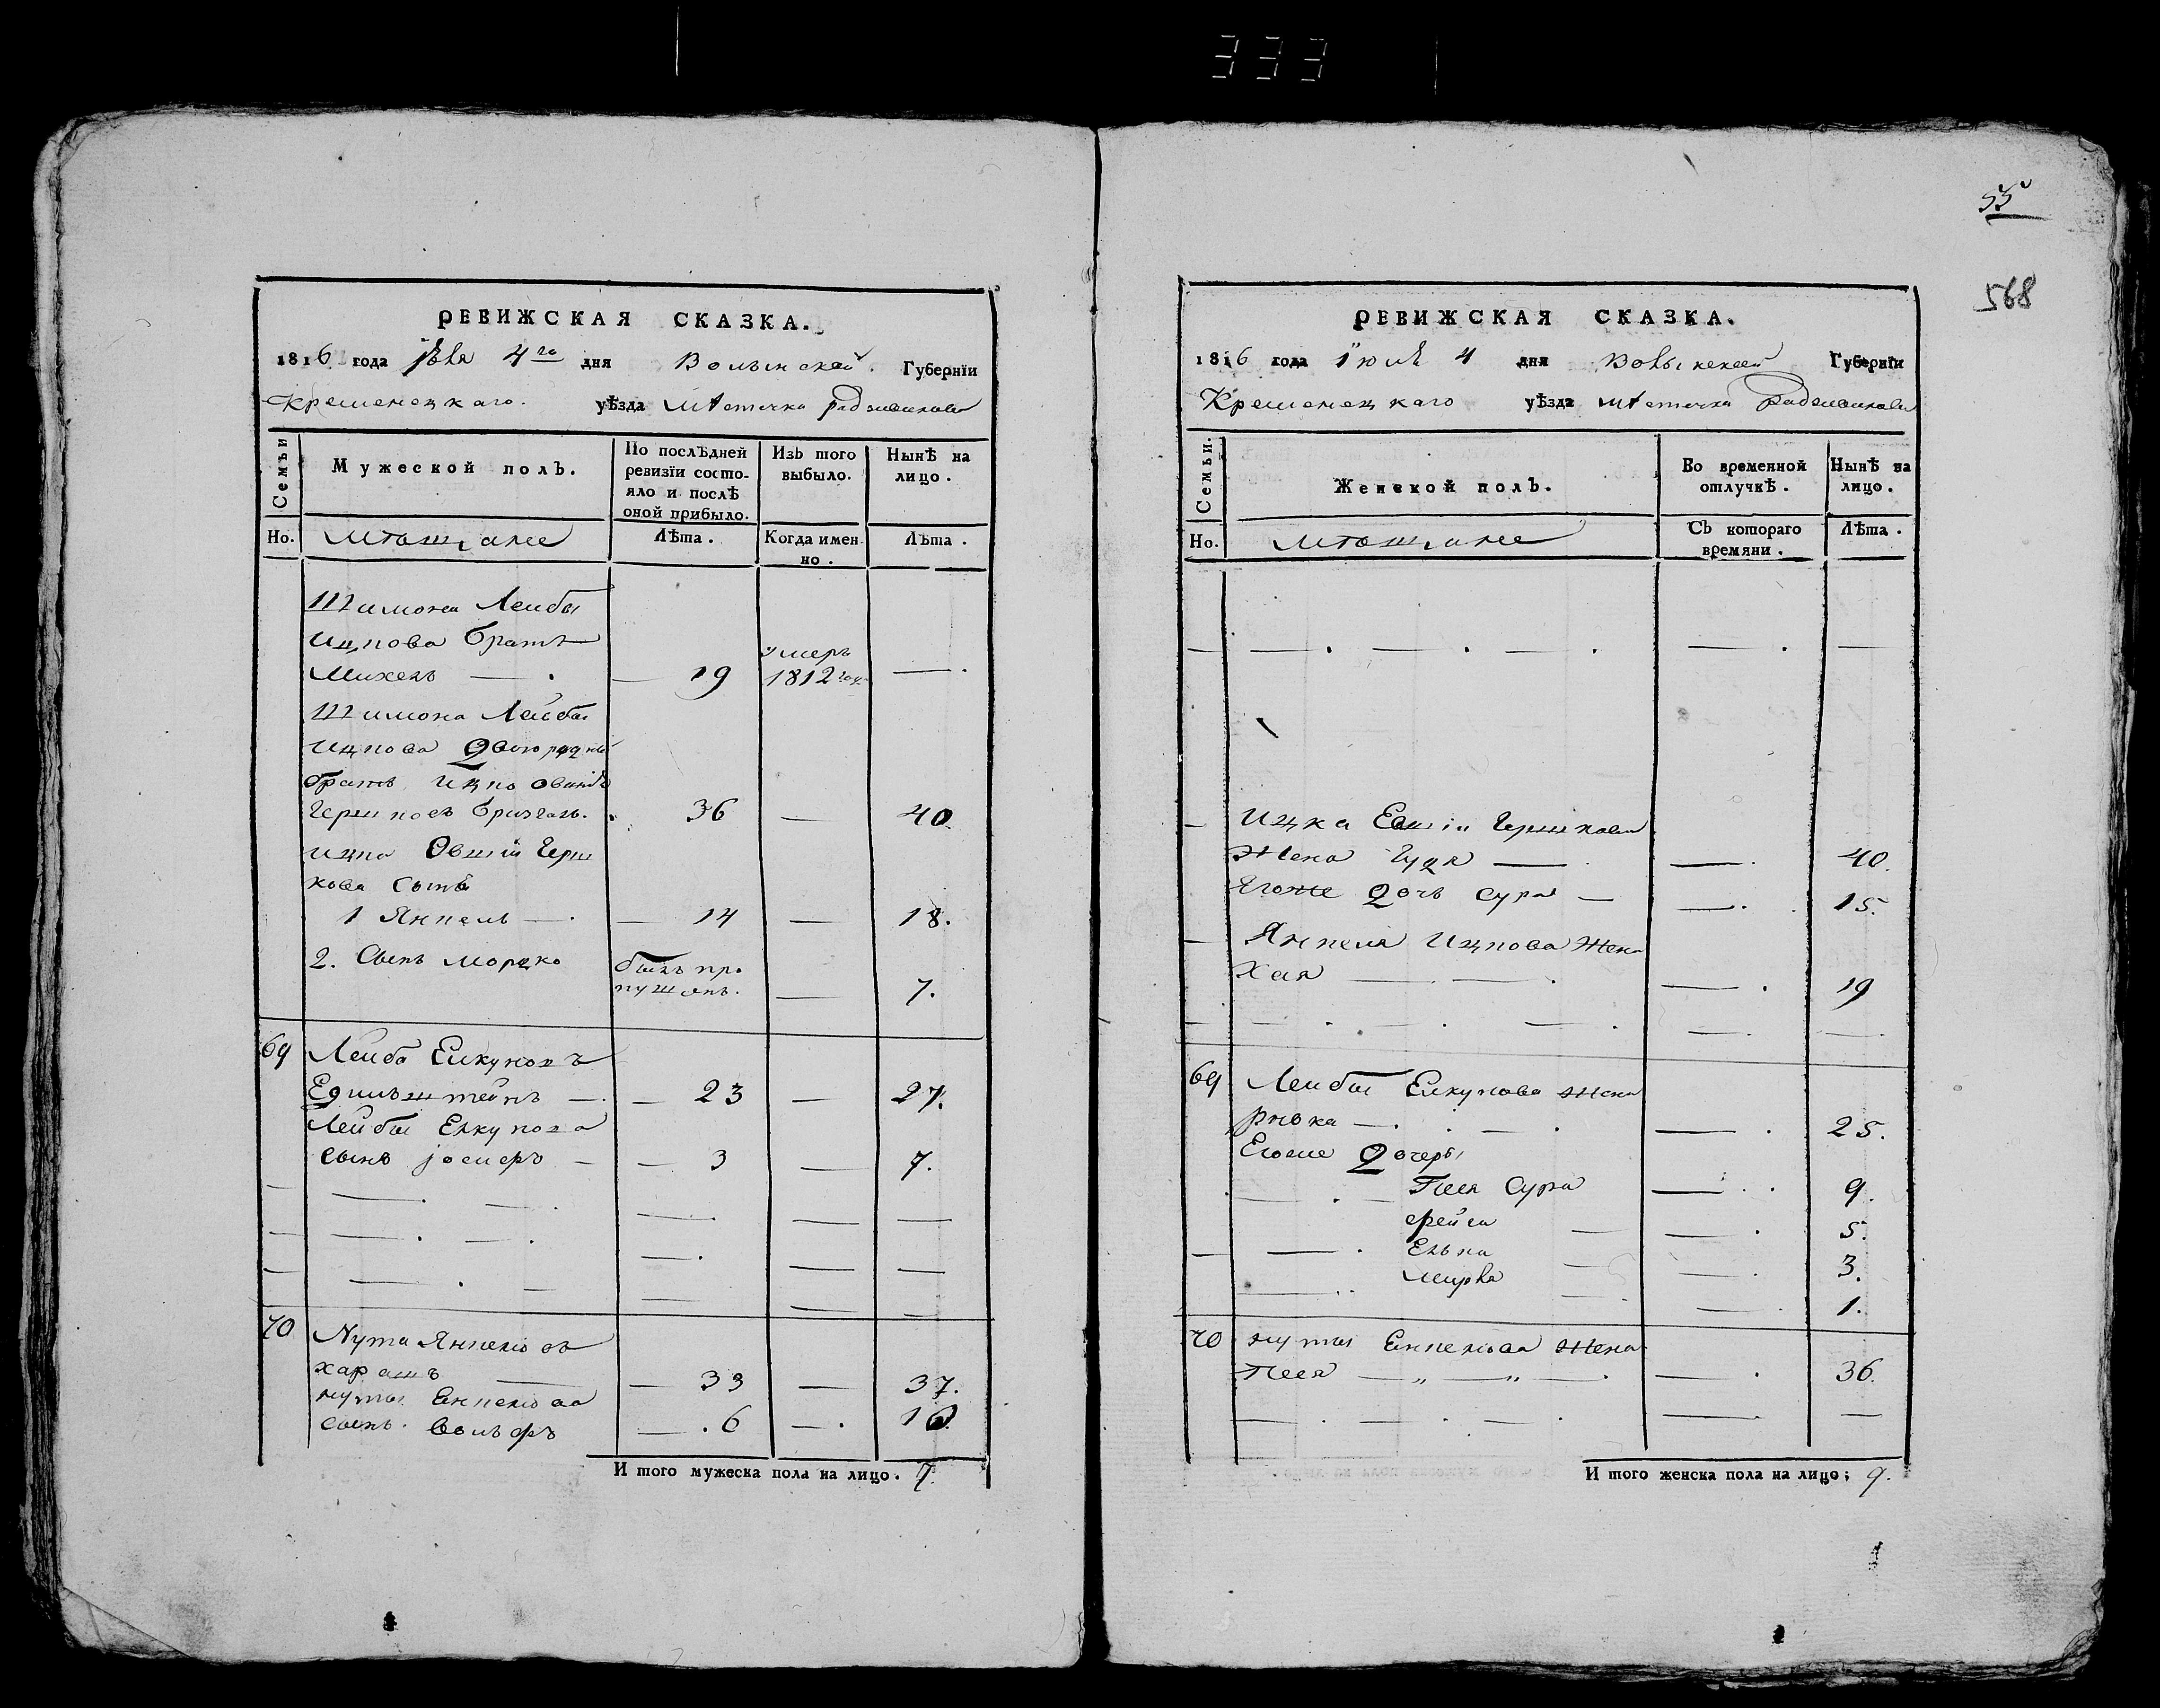 333
РЕВИЖСКАЯ СКАЗКА.
1816 года 4го дня Волынской Губернїи
Кременецкаго. уѣзда местечка
Семьи
Мужеской полъ.
По послѣдней ревизїи состо-
яло и послѣ
оной прибыло.
Изъ того
выбыло.
Нынѣ на
лицо.
Но.
Лѣта.
Когда имен-
но.
Лѣта.
Шимона Лейбы
Ицкова братъ
Михель — 19 умеръ
1812 —
Шимона Лейбы
Ицкова Двоюродный
братъ Ицко
Гершковъ 36 — 40
Ицка Овшии Герш
кова сынъ
1 Янкель — 14 — 18.
2. Сынъ Мордко былъ про
пущенъ. — 7.
69 Лейба
Едильштейнъ — 23 — 27.
Лейбы
сынъ — 3 — 7.
70 Нута Янкелювъ
харашъ — 33 — 37.
нуты Енкелюва
сынъ Вольфъ — 6 — 10
И того мужеска пола на лицо. 7.
55
568
РЕВИЖСКАЯ СКАЗКА.
1816 года Iюля 4 дня Губернїи
Кременецкаго уѣзда местечка
Семьи.
Женской полъ.
Во временной
отлучкѣ.
Нынѣ на
лицо.
Но.
Съ котораго
времяни.
Лѣта.
Ицка Гершкова
Жена — 40.
Егоже Дочь Сура — 15.
Янкеля Ицкова Жена
Хая — 19
69 Лейбы жена
Ривка — 25.
Егоже Дочеры
Песя Сура — 9.
Фейга — 5.
Елька — 3.
— 1.
70 нуты Енкелюва Жена
Песя — 36.
И того женска пола на лицо; 9.